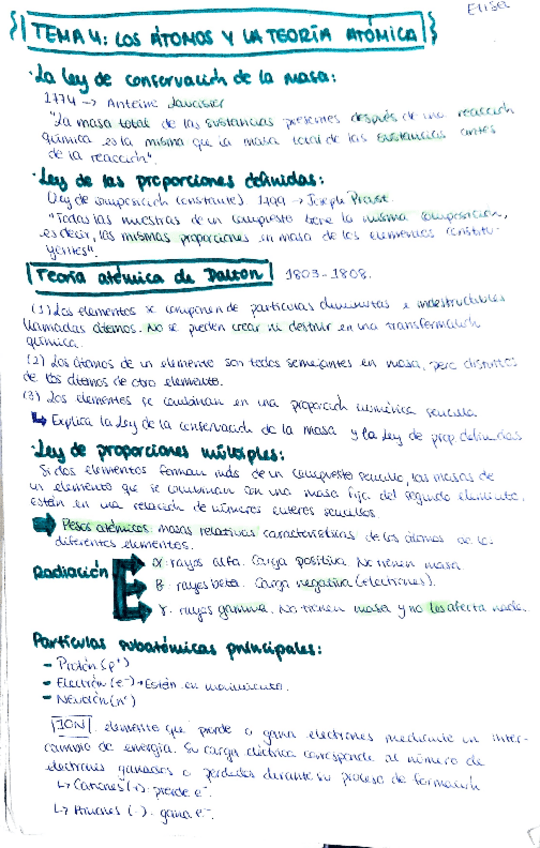 Elisa
TEMA 4: LOS ÁTOMOS Y LA TEORÍA ATÓMICA
·La ley de conservación de la masa:
1774 → Antoine Lavoisier
"La masa total de las sustancias presentes después de una reacción
química es la misma que la masa total de las sustancias antes
de la reacción".
·Ley de las proporciones definidas:
(Ley de composición constante) 1799 → Joseph Proust.
"Todas las muestras de un compuesto tiene la misma composición,
es decir, las mismas proporciones en masa de los elementos constitu-
yentes".
Teoría atómica de Dalton 1803-1808.
(1) Los elementos se componen de partículas diminutas e indestructibles
llamadas átomos. No se pueden crear ni destruir en una transformación
química.
(2) Los átomos de un elemento son todos semejantes en masa, pero distintos
de los átomos de otro elemento.
(3) Los elementos se combinan en una proporción numérica sencilla.
↳ Explica la Ley de la conservación de la masa y la Ley de prop definidas
·Ley de proporciones múltiples:
Si dos elementos forman más de un compuesto sencillo, las masas de
un elemento que se combinan con una masa fija del segundo elemento,
están en una relación de números enteros sencillos.
→ Pesos atómicos: masas relativas características de los átomos de los
diferentes elementos.
Radiación
α: rayos alfa. Carga positiva. No tienen masa
β: rayos beta. Carga negativa (electrones).
γ: rayos gamma. No tienen masa y no les afecta nada.
Partículas subatómicas principales:
- Protón (p⁺)
- Electrón (e⁻) → Están en movimiento.
- Neutrón (n°)
ION: elemento que pierde o gana electrones mediante un inter-
cambio de energía. Su carga eléctrica corresponde al número de
electrones ganados o perdidos durante su proceso de formación
↳ Cationes (+): pierde e⁻.
↳ Aniones (-): gana e⁻.